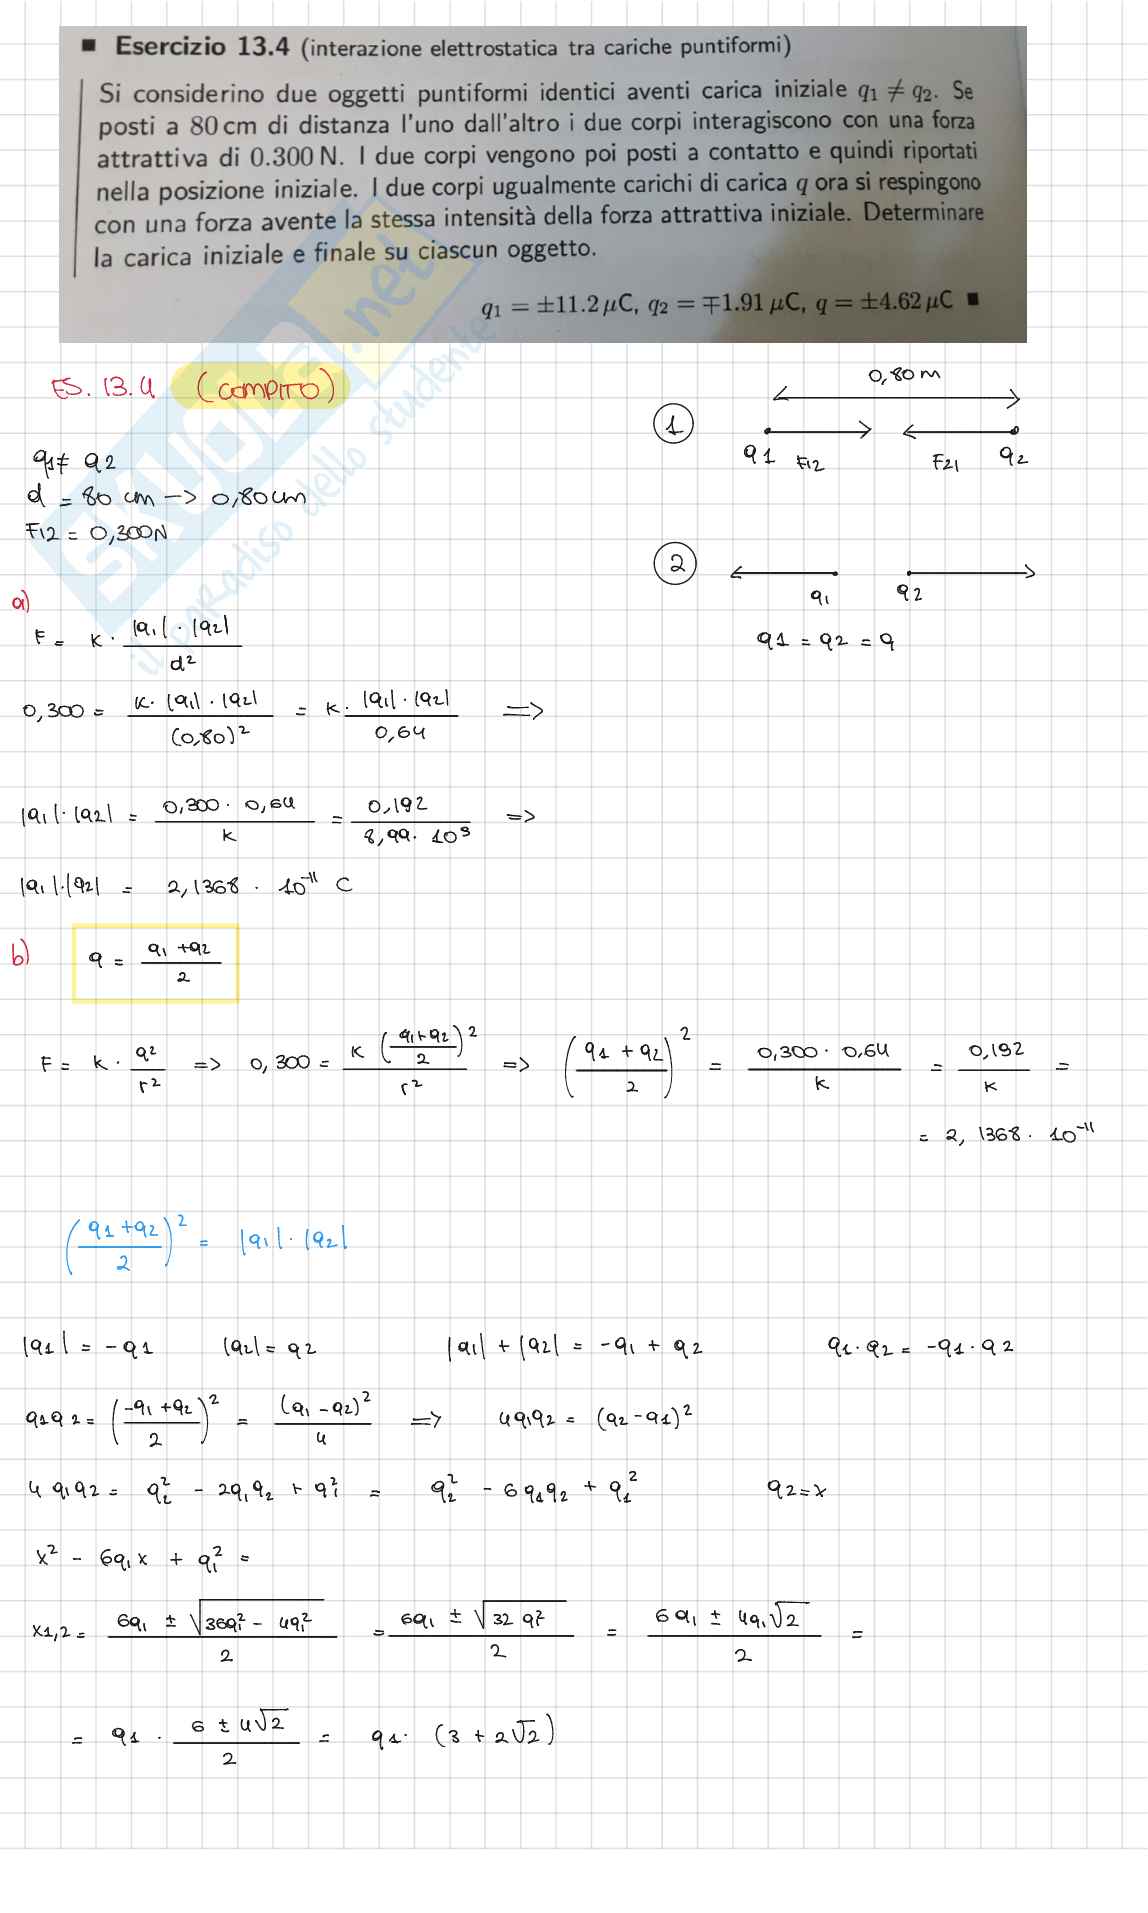 ■ Esercizio 13.4 (interazione elettrostatica tra cariche puntiformi)
Si considerino due oggetti puntiformi identici aventi carica iniziale q₁ ≠ q₂. Se
posti a 80 cm di distanza l'uno dall'altro i due corpi interagiscono con una forza
attrattiva di 0.300 N. I due corpi vengono poi posti a contatto e quindi riportati
nella posizione iniziale. I due corpi ugualmente carichi di carica q ora si respingono
con una forza avente la stessa intensità della forza attrattiva iniziale. Determinare
la carica iniziale e finale su ciascun oggetto.
q₁ = ±11.2 μC, q₂ = ∓1.91 μC, q = ±4.62 μC ■
SKUOLA.net
il paradiso dello studente
ES. 13.4 (COMPITO)
0,80 m
1
q1 F12 F21 q2
q1 ≠ q2
d = 80 cm -> 0,80 cm
F12 = 0,300N
2
q1 q2
q1 = q2 = q
a)
F = K · |q1| · |q2| / d²
0,300 = K · |q1| · |q2| / (0,80)² = K · |q1| · |q2| / 0,64 =>
|q1| · |q2| = 0,300 · 0,64 / K = 0,192 / 8,99 · 10⁹ =>
|q1| · |q2| = 2,1368 · 10⁻¹¹ C
b) q = (q1 + q2) / 2
F = K · q² / r² => 0,300 = K ((q1+q2) / 2)² / r² => ((q1 + q2) / 2)² = 0,300 · 0,64 / K = 0,192 / K =
= 2,1368 · 10⁻¹¹
((q1 + q2) / 2)² = |q1| · |q2|
|q1| = - q1 |q2| = q2 |q1| + |q2| = - q1 + q2 q1 · q2 = - q1 · q2
q1q2 = ((-q1 + q2) / 2)² = (q1 - q2)² / 4 => 4q1q2 = (q2 - q1)²
4 q1q2 = q2² - 2q1q2 + q1² = q2² - 6q1q2 + q1² q2 = x
x² - 6q1x + q1² =
x1,2 = (6q1 ± √(36q1² - 4q1²)) / 2 = (6q1 ± √(32 q1²)) / 2 = (6q1 ± 4q1√2) / 2 =
= q1 · (6 ± 4√2) / 2 = q1 · (3 + 2√2)